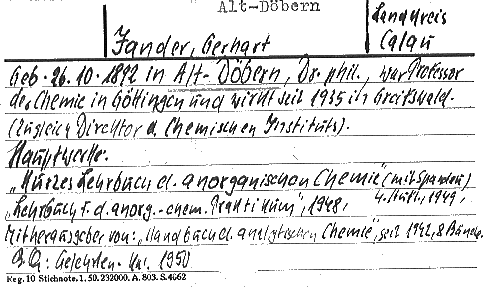 Alt-Döbern
Landkreis
Calau
Jander, Gerhart
Geb. 26.10.1892 in Alt-Döbern, Dr. phil., war Professor
der Chemie in Göttingen und wirkt seit 1935 in Greifswald.
(Zugleich Direktor d. Chemischen Instituts).
Hauptwerke:
"Kurzes Lehrbuch d. anorganischen Chemie" (mit Spandau)
4. Aufl., 1949,
"Lehrbuch f. d. anorg.-chem. Praktikum", 1948,
Mitherausgeber von: "Handbuch d. analytischen Chemie", seit 1942, 8 Bände.
Gelehrten- Kal. 1950
Reg. 10 Stichnote. 1. 50. 232000. A. 803. S. 4662